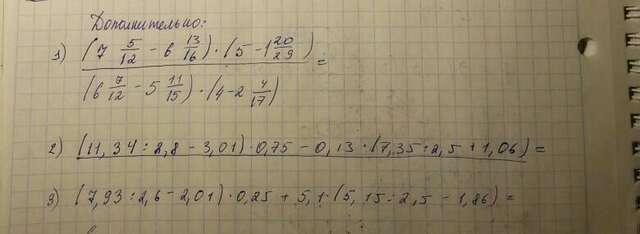 Дополнительно:
1) (7 5/12 - 6 13/16) · (5 - 1 20/29)
(6 7/12 - 5 11/15) · (4 - 2 4/17) =
2) (11,34 : 2,8 - 3,01) · 0,75 - 0,13 · (7,35 : 2,5 + 1,06) =
3) (7,93 : 2,6 - 2,01) · 0,25 + 5,1 · (5,15 : 2,5 - 1,86) =